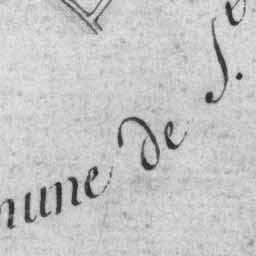 mune de S.